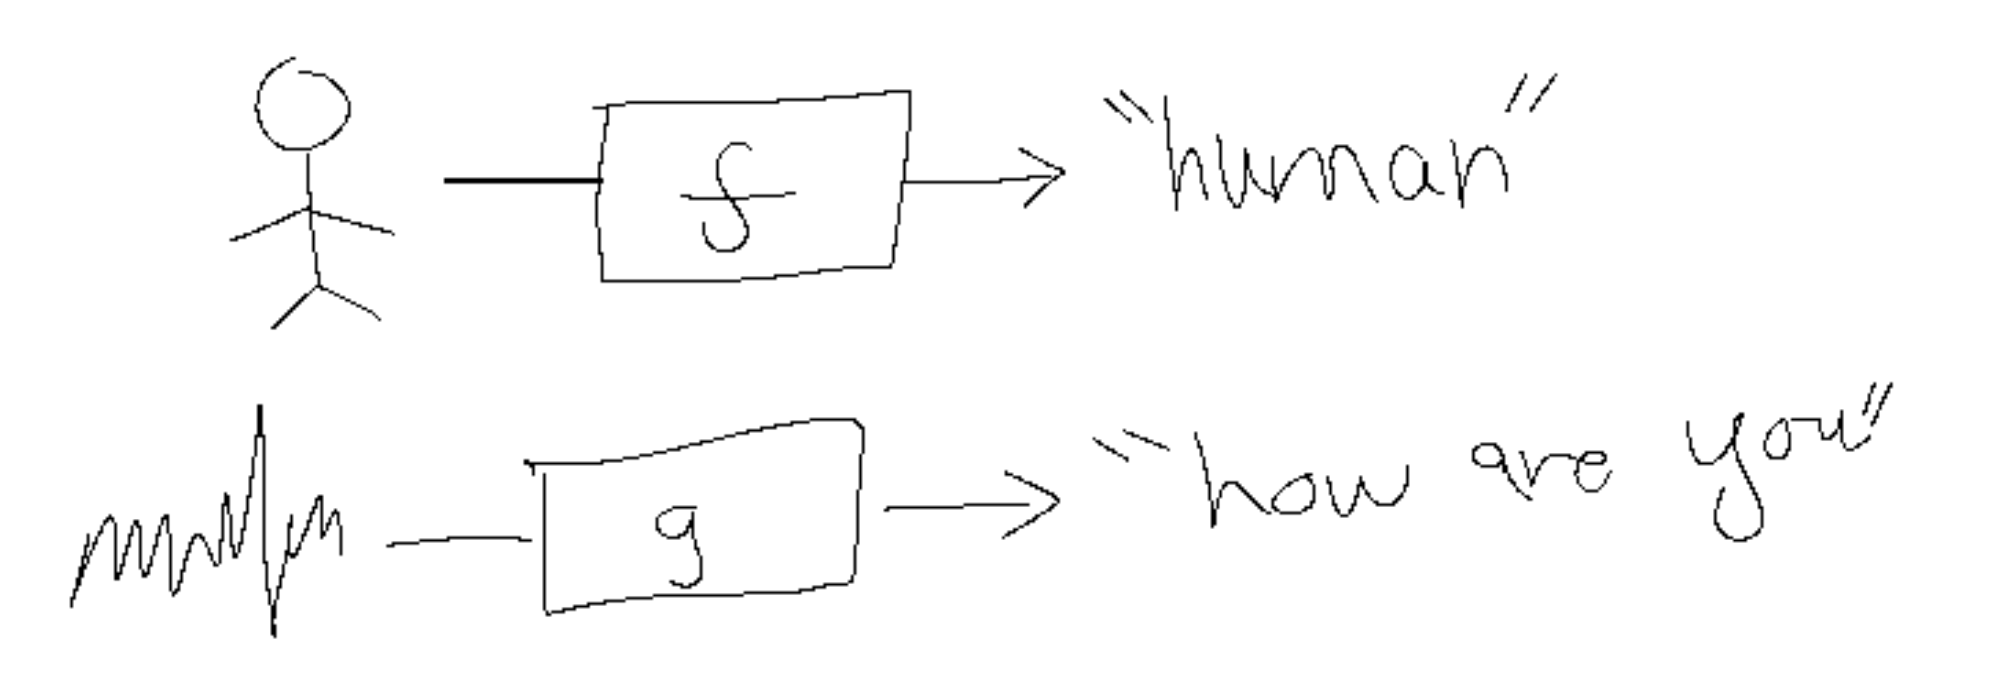 f "human"
g "how are you"